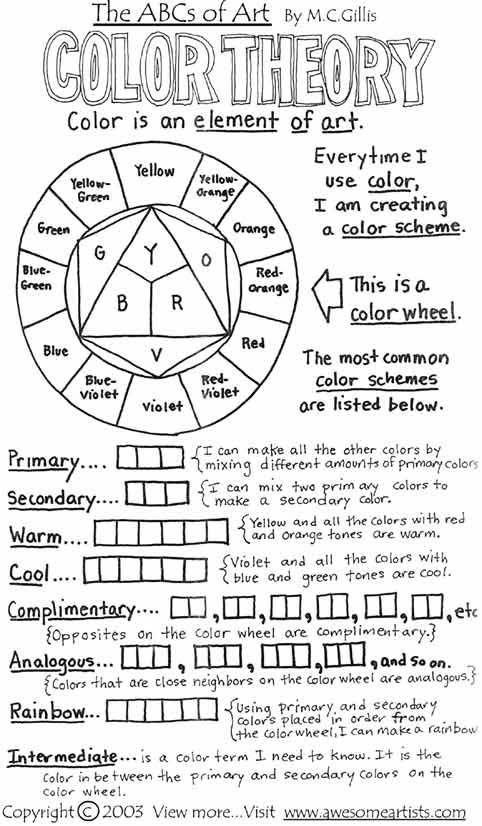 The ABCs of Art By M.C.Gillis
COLOR THEORY
Color is an element of art.
Yellow
Yellow-
Orange
Orange
Red-
Orange
Red
Red-
Violet
Violet
Blue-
Violet
Blue
Blue-
Green
Green
Yellow-
Green
G
Y
O
B
R
V
Everytime I
use color,
I am creating
a color scheme.
This is a
color wheel.
The most common
color schemes
are listed below.
Primary.... {I can make all the other colors by
mixing different amounts of primary colors
Secondary.... {I can mix two primary colors to
make a secondary color.
Warm.... {Yellow and all the colors with red
and orange tones are warm.
Cool.... {Violet and all the colors with
blue and green tones are cool.
Complimentary.... , , , , , , etc
{Opposites on the color wheel are complimentary.}
Analogous... , , , , and so on.
{Colors that are close neighbors on the color wheel are analogous.}
Rainbow... {Using primary and secondary
colors placed in order from
the color wheel, I can make a rainbow
Intermediate... is a color term I need to know. It is the
color in between the primary and secondary colors on the
color wheel.
Copyright © 2003 View more...Visit www.awesomeartists.com.